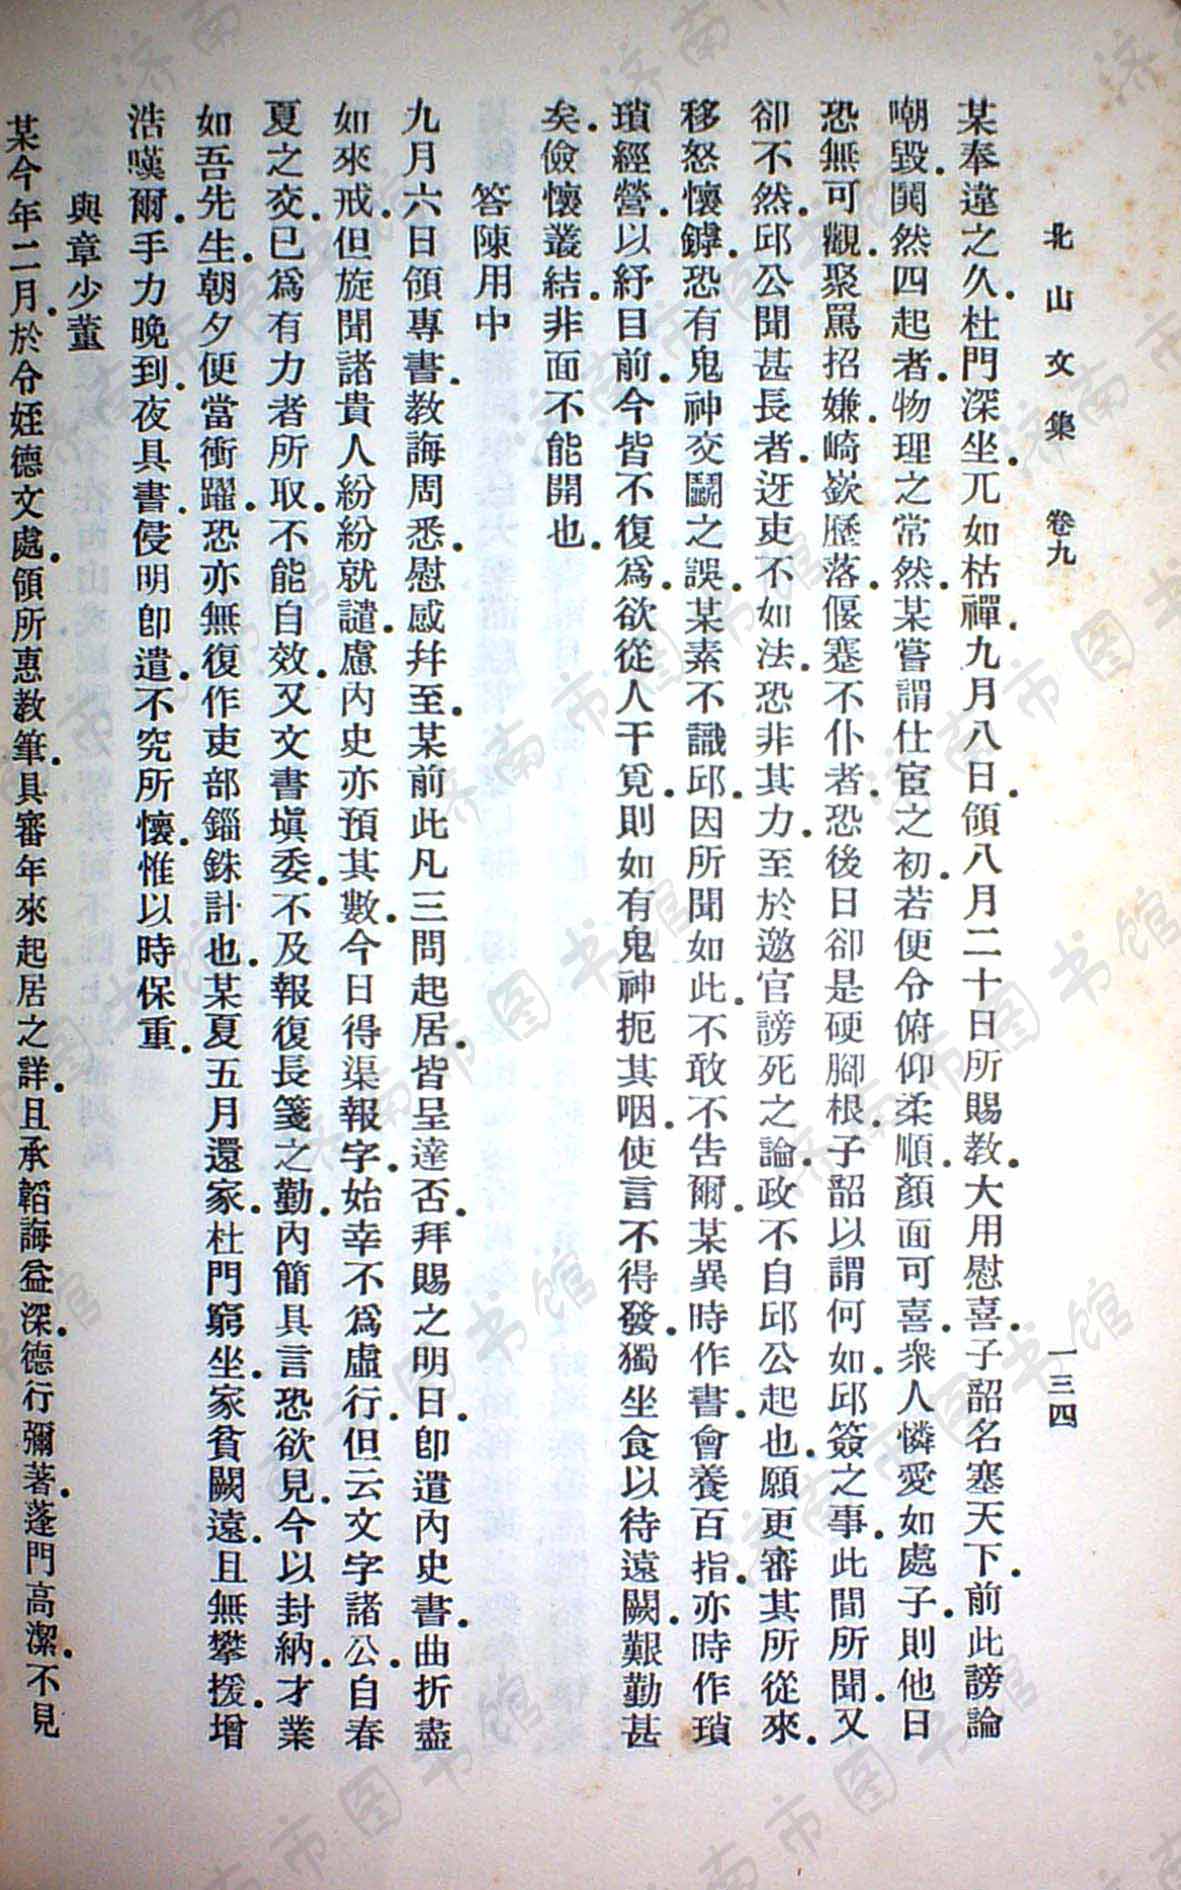 北山文集　卷九　一三四
某奉違之久.杜門深坐.兀如枯禪.九月八日.領八月二十日所賜教.大用慰喜.子韶名塞天下.前此謗論
嘲毀.鬨然四起者.物理之常然.某嘗謂仕宦之初.若便令俯仰柔順.顏面可喜.衆人憐愛如處子.則他日
恐無可觀.聚罵招嫌.崎嶔歷落.偃蹇不仆者.恐後日卻是硬腳根.子韶以謂何如.邱簽之事.此間所聞.又
卻不然.邱公聞甚長者.迓吏不如法.恐非其力.至於邀官謗死之論.政不自邱公起也.願更審其所從來.
移怒懷鎼.恐有鬼神交鬭之誤.某素不識邱.因所聞如此.不敢不告爾.某異時作書.會養百指.亦時作瑣
瑣經營.以紓目前.今皆不復爲.欲從人干覓.則如有鬼神扼其咽.使言不得發.獨坐食以待遠闕.艱勤甚
矣.儉懷叢結.非面不能開也.
答陳用中
九月六日領專書.教誨周悉.慰感幷至.某前此凡三問起居.皆呈達否.拜賜之明日.卽遣內史書.曲折盡
如來戒.但旋聞諸貴人紛紛就譴.慮內史亦預其數.今日得渠報字.始幸不爲虛行.但云文字諸公.自春
夏之交.已爲有力者所取.不能自效.又文書塡委.不及報復長箋之勤.內簡具言恐欲見.今以封納.才業
如吾先生.朝夕便當衝躍.恐亦無復作吏部錙銖計也.某夏五月還家.杜門窮坐.家貧闕遠.且無攀援.增
浩嘆爾.手力晚到.夜具書.侵明卽遣.不究所懷.惟以時保重.
與章少董
某今年二月.於令姪德文處.領所惠教筆.具審年來起居之詳.且承韜誨益深.德行彌著.蓬門高潔.不見